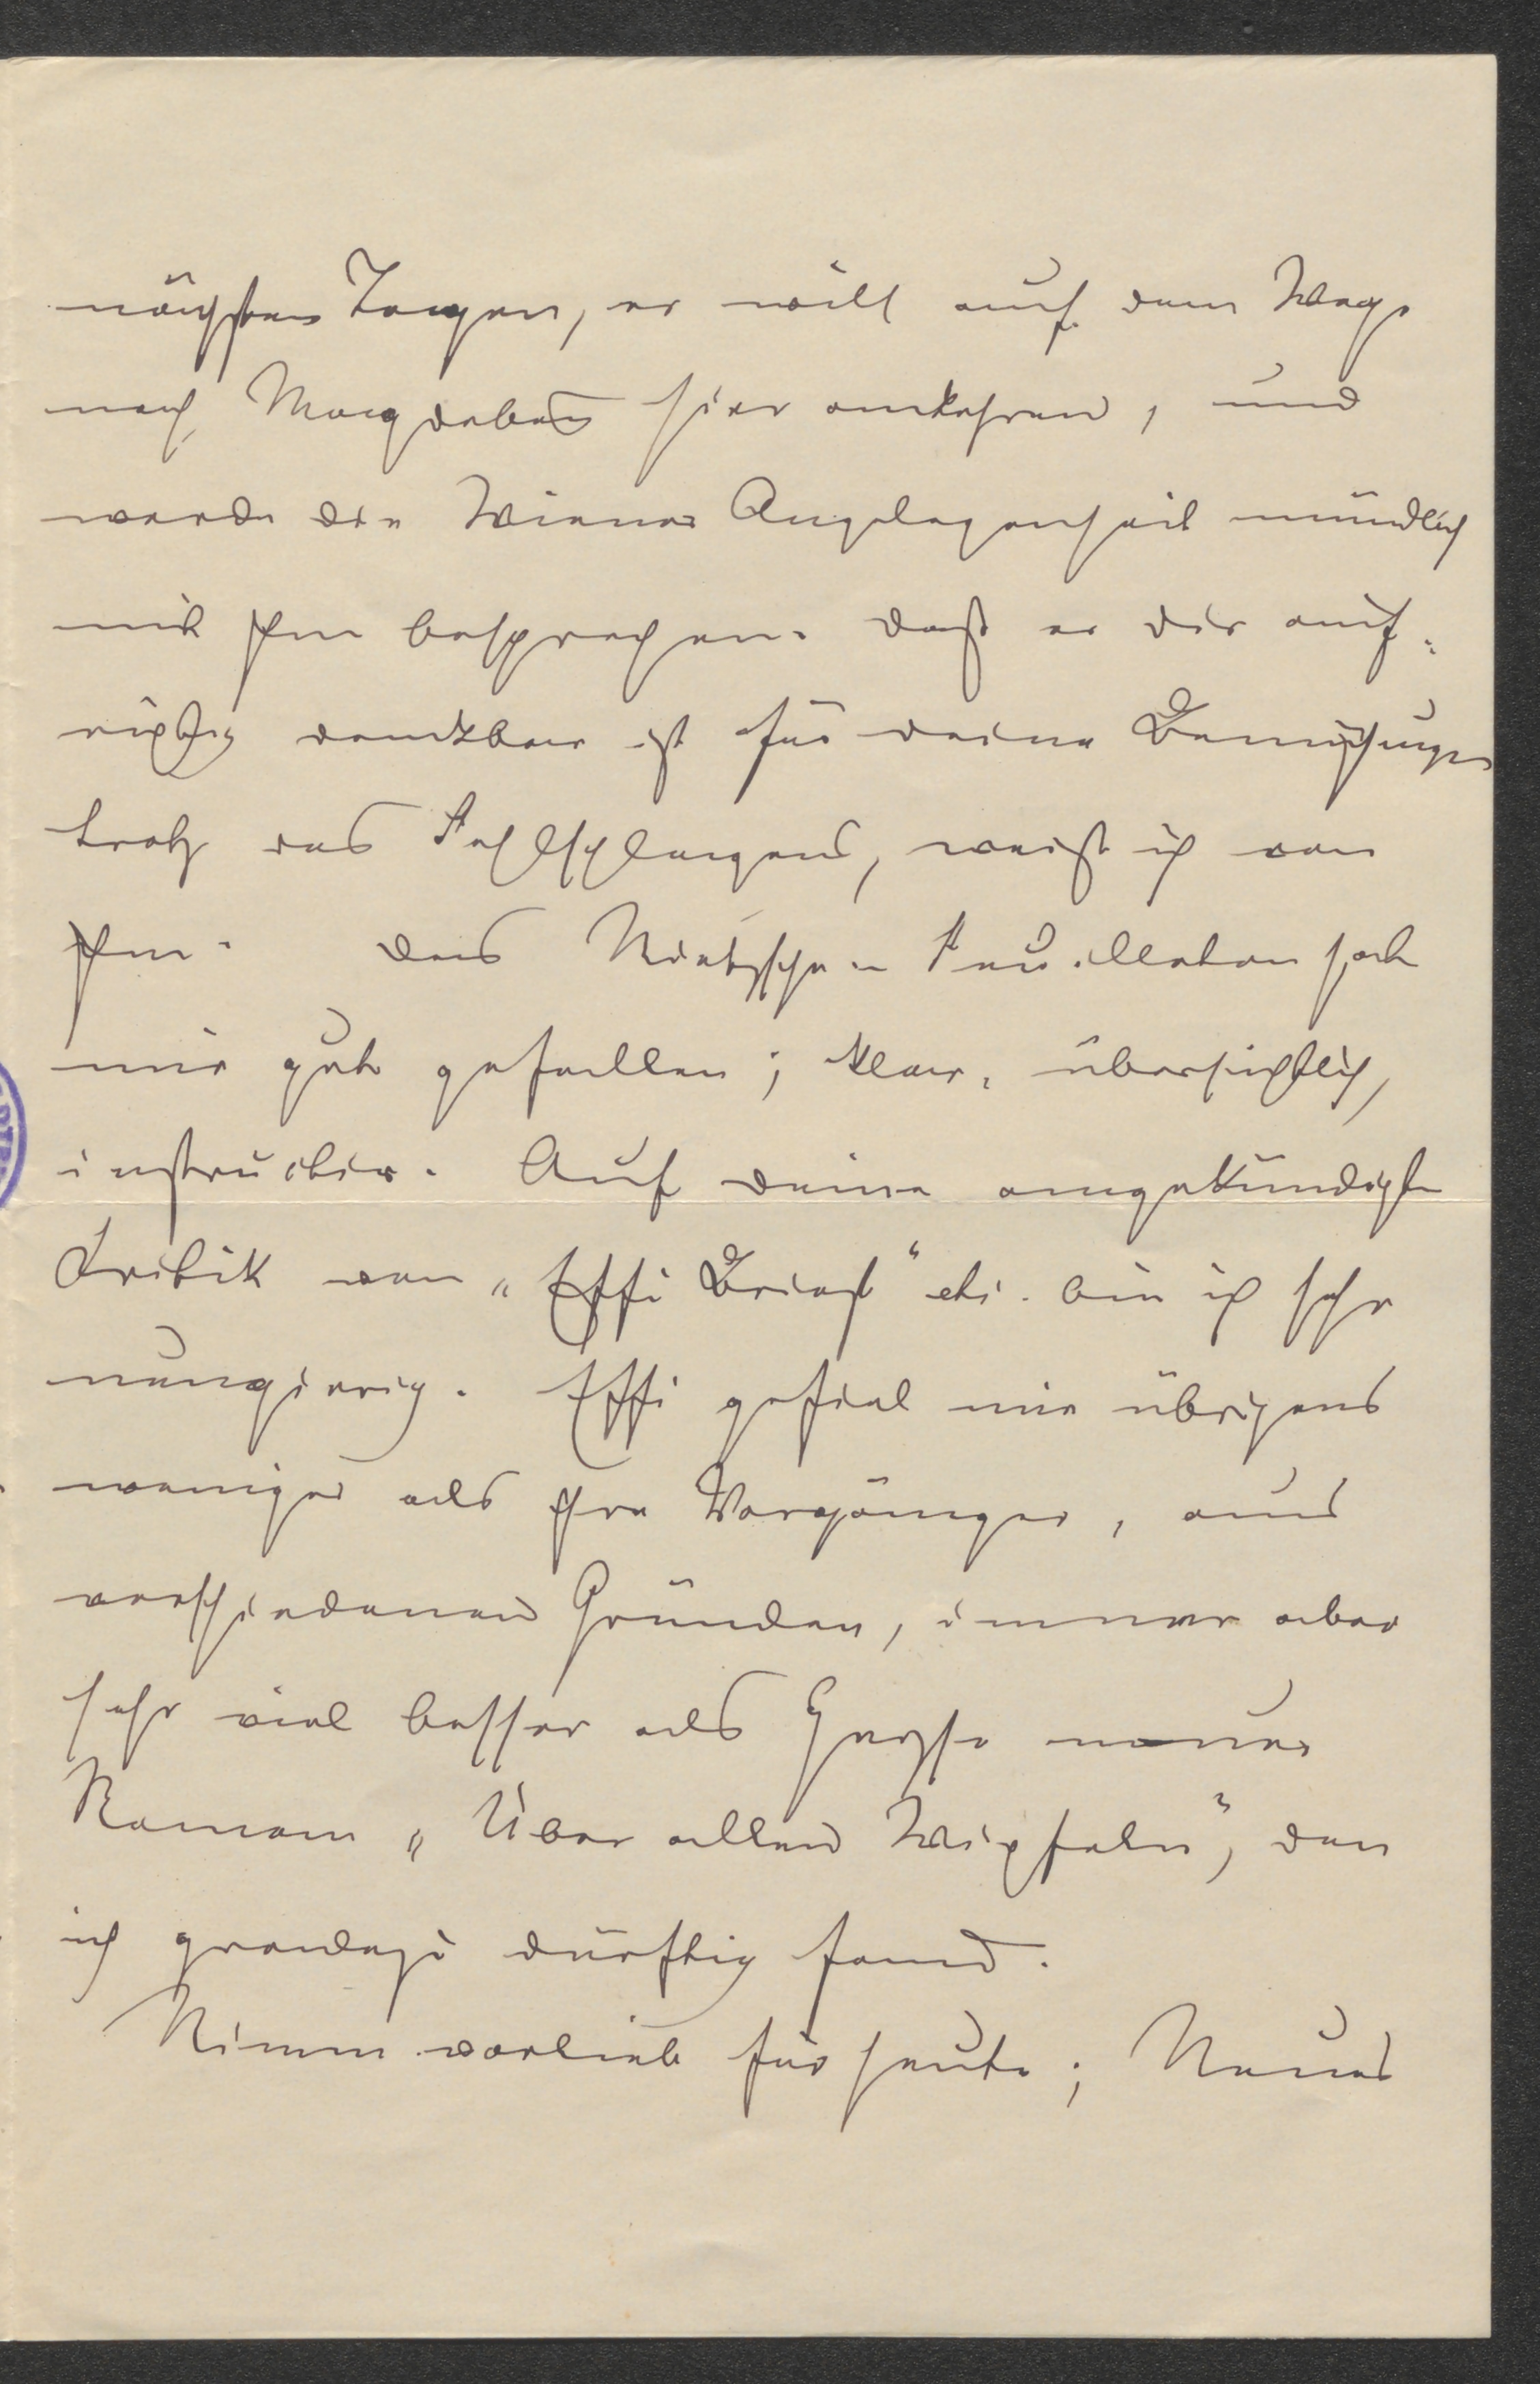 nächsten Tagen, er will auf dem Wege
nach Magdeburg hier einkehren, und
werde die Wiener Angelegenheit mündlich
mit ihm besprechen. Daß er dir auf-
richtig dankbar ist für deine Bemühungen
trotz des Fehlschlagens, weiß ich von
ihm. Das Nietzsche-Feuilleton hat
mir gut gefallen; klar, übersichtlich,
instructiv. Auf deine angekündigte
Kritik von „Effi Briest“ etc. bin ich sehr
neugierig. Effi gefiel mir übrigens
weniger als ihre Vorgänger, aus
verschiedenen Gründen, immer aber
sehr viel besser als Heyse neuer
Roman „Über allen Wipfeln“, den
ich gradezu dürftig fand.
Nimm vorlieb für heute; Neues